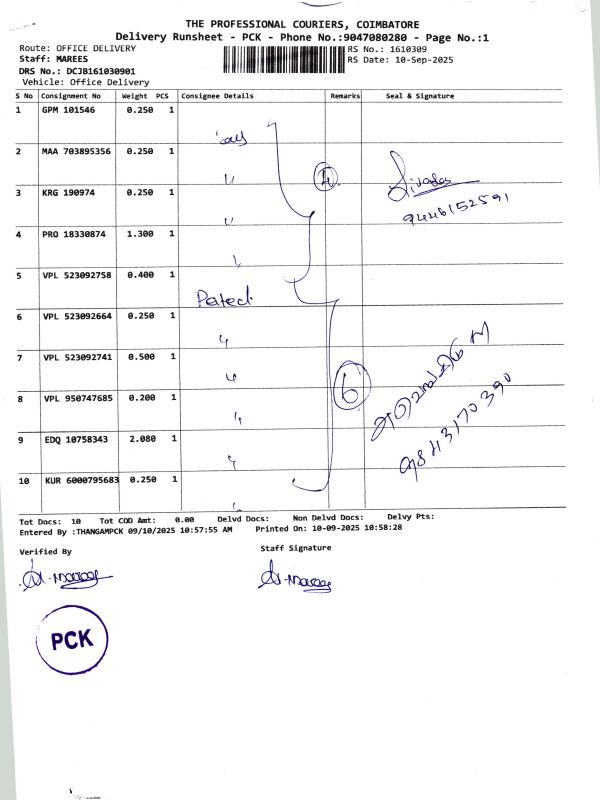 THE PROFESSIONAL COURIERS, COIMBATORE
Delivery Runsheet - PCK - Phone No.:9047080280 - Page No.:1
Route: OFFICE DELIVERY RS No.: 1610309
Staff: MAREES RS Date: 10-Sep-2025
DRS No.: DCJB161030901
Vehicle: Office Delivery
S No Consignment No Weight PCS Consignee Details Remarks Seal & Signature
1 GPM 101546 0.250 1
2 MAA 703895356 0.250 1
3 KRG 190974 0.250 1
4
Sivadas
9446152591
4 PRO 18330874 1.300 1
5 VPL 523092758 0.400 1
6 VPL 523092664 0.250 1
7 VPL 523092741 0.500 1
8 VPL 950747685 0.200 1
6
9843170390
9 EDQ 10758343 2.080 1
10 KUR 6000795683 0.250 1
Tot Docs: 10 Tot COD Amt: 0.00 Delvd Docs: Non Delvd Docs: Delvy Pts:
Entered By :THANGAMPCK 09/10/2025 10:57:55 AM Printed On: 10-09-2025 10:58:28
Verified By Staff Signature
PCK